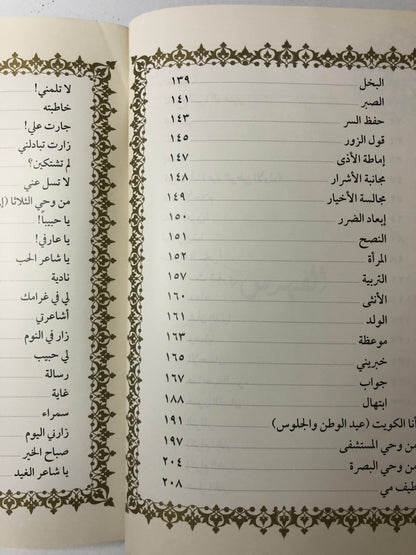 البخل ١٣٩
الصبر ١٤١
حفظ السر ١٤٣
قول الزور ١٤٥
إماطة الأذى ١٤٧
مجانبة الأشرار ١٤٨
مجالسة الأخيار ١٤٩
إبعاد الضرر ١٥٠
النصح ١٥١
المرأة ١٥٢
التربية ١٥٧
الأنثى ١٦٠
الولد ١٦١
موعظة ١٦٣
خبريني ١٦٥
جواب ١٦٧
ابتهال ١٨٨
أنا الكويت (عيد الوطن والجلوس) ١٩١
من وحي المستشفى ١٩٧
من وحي البصرة ٢٠٤
طيف مي ٢٠٨
لا تلمني!
خاطبته
جارت علي!
زارت تبادلني
لم تشتكين؟
لا تسل عني
من وحي الثلاثا
يا حبيباً!
يا عارفي!
يا شاعر الحب
نادية
لي في غرامك
أشاعرتي
زار في النوم
لي حبيب
رسالة
غاية
سمراء
زارني اليوم
صباح الخير
يا شاعر الغيد